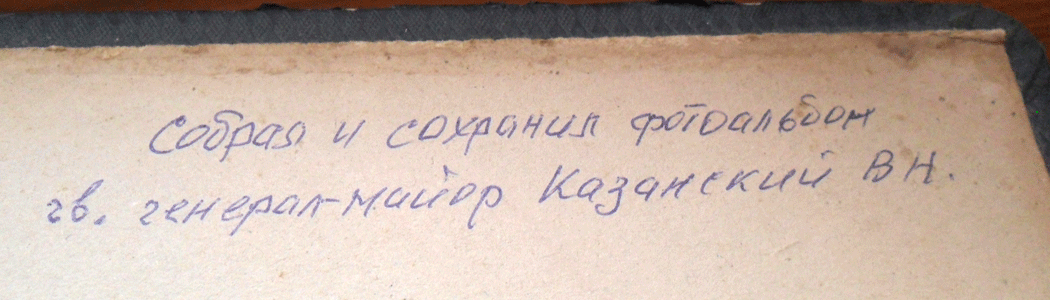 Собрал и сохранил фотоальбом
гв. генерал-майор Казанский В Н.